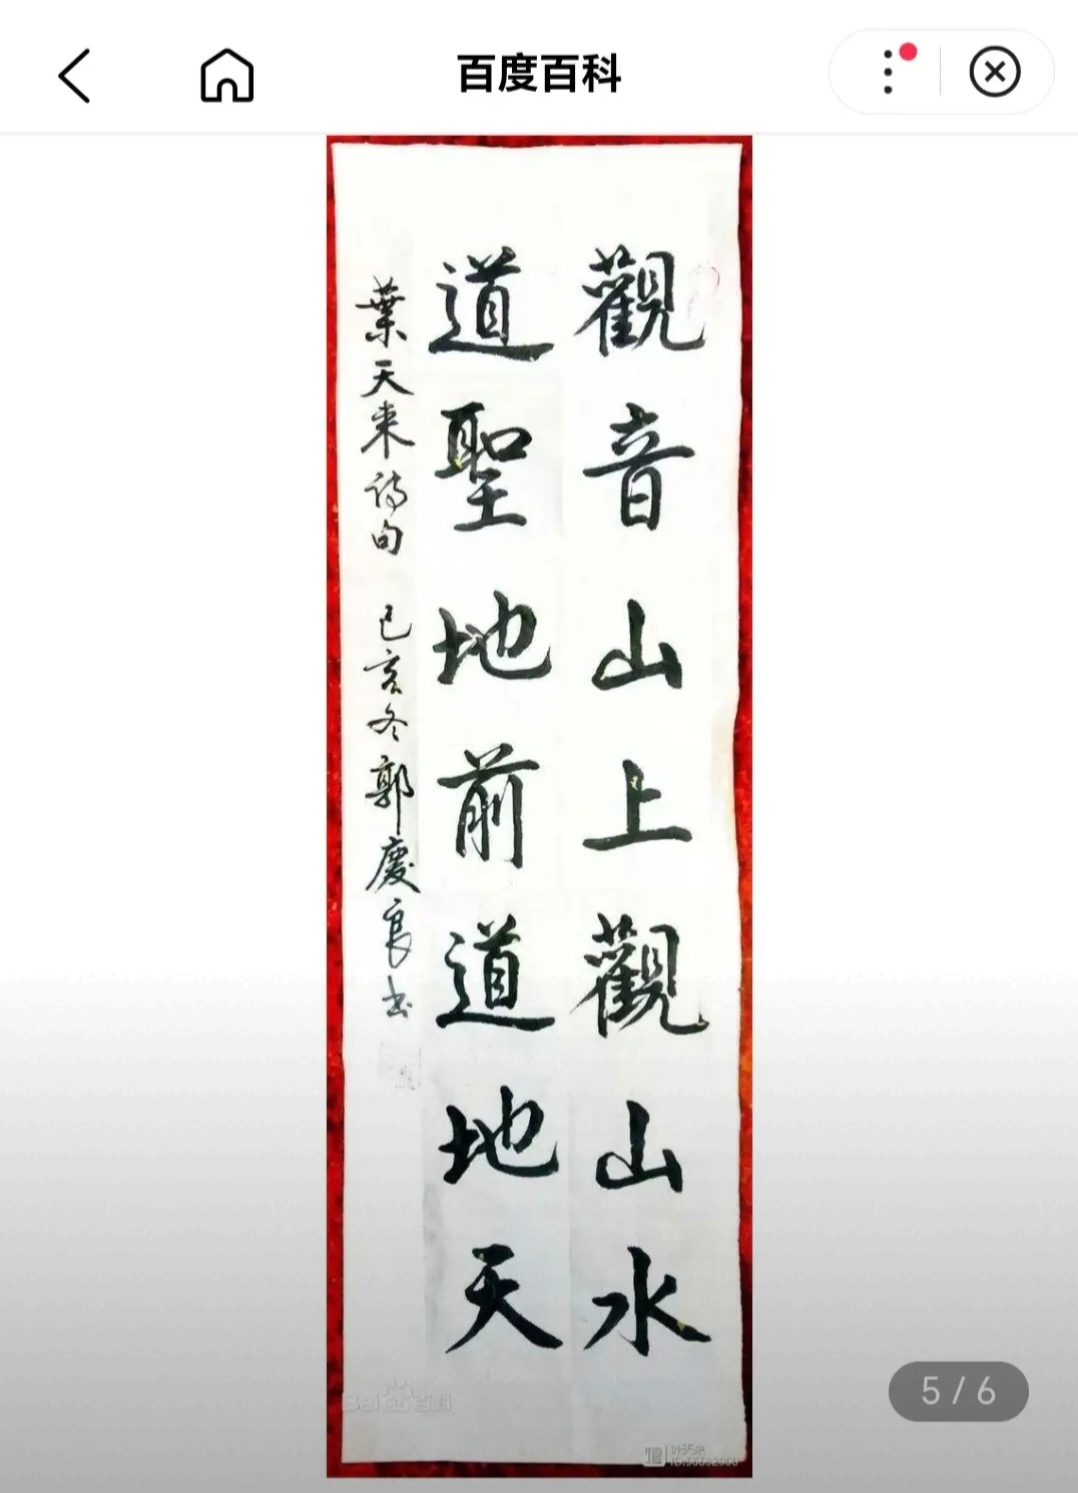 百度百科
觀音山上觀山水
道聖地前道地天
葉天來詩句 己亥冬郭慶良书
5 / 6
Bai百科